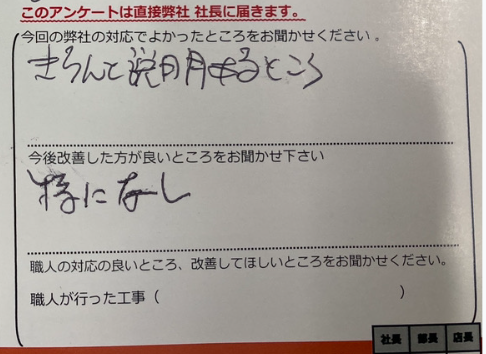 このアンケートは直接弊社 社長に届きます。
今回の弊社の対応でよかったところをお聞かせください 。
きちんと説明するところ
今後改善した方が良いところをお聞かせ下さい
特になし
職人の対応の良いところ、改善してほしいところをお聞かせください。
職人が行った工事（ ）
社長 部長 店長